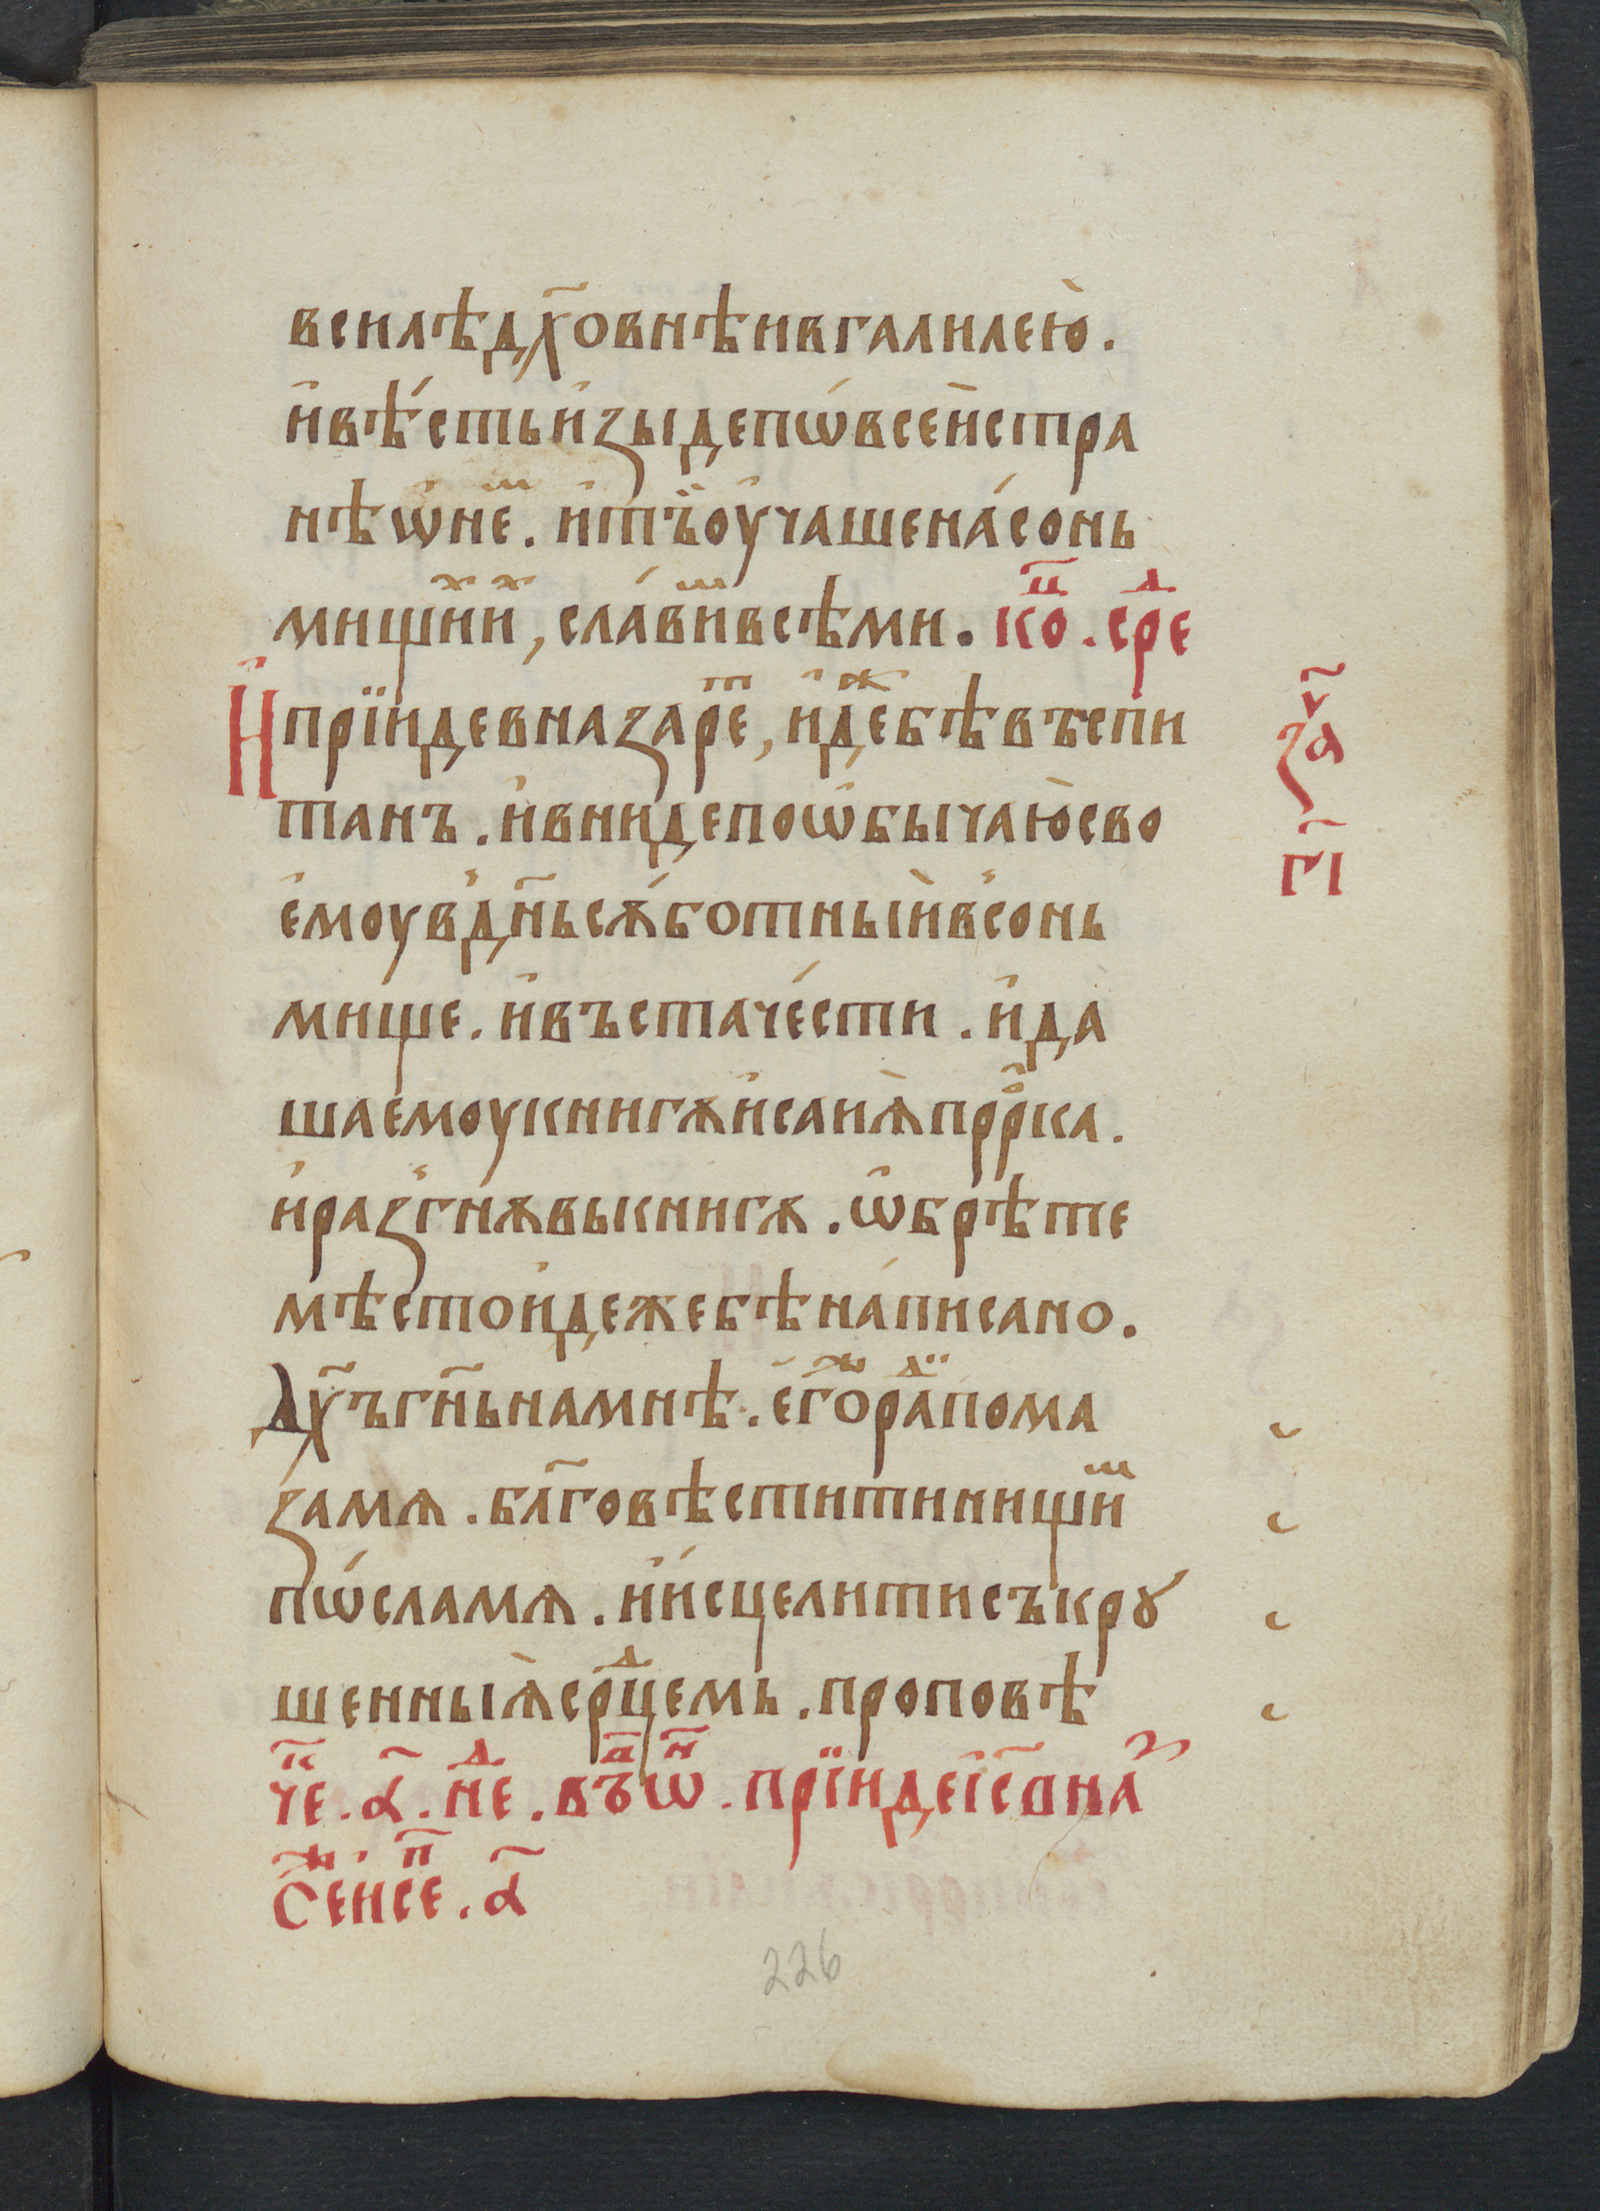 всилѣдх҃овнѣивгалилею̀.
и҆вѣ́стьи҆зыдепѡ́всеи҆стра
нѣѡ҆неⷨ. и҆тъи҆оу҆чашена́сонь
мищииⷯⷯ, сла́виⷨвсѣми. коⷰ҇. среⷣ
И҆прїидевназареⷮ, и҆деⷤбѣвъспи
танъ. и҆внидепоѡ҆бычаюсво
е҆моувд҃ньсѫ́ботныи҆всонь
мище. и҆въстаче́сти. и҆да
шаемоукнигѫи҆саиѧ҆прⷪ҇рка.
и҆разгнѫвькнигѫ. ѡ҆брѣте
мѣстои҆дежебѣна́писано.
Дх҃ъгн҃ьнамнѣ. е҆гоⷤраⷣпома
замѧ. бл҃говѣстититинищиⷨ
пѡ́сламѧ. и҆и́сцелитисъкрꙋ
шенныѧ҆срⷣцемь. проповѣ
чеⷦ҇. а҃. неⷣ. въⷣѡⷩ҇. прїидеі҆с҃внаⷥ
Сеⷤнсеⷫ҇. а҃
за҃ⷱ
г҃і
226